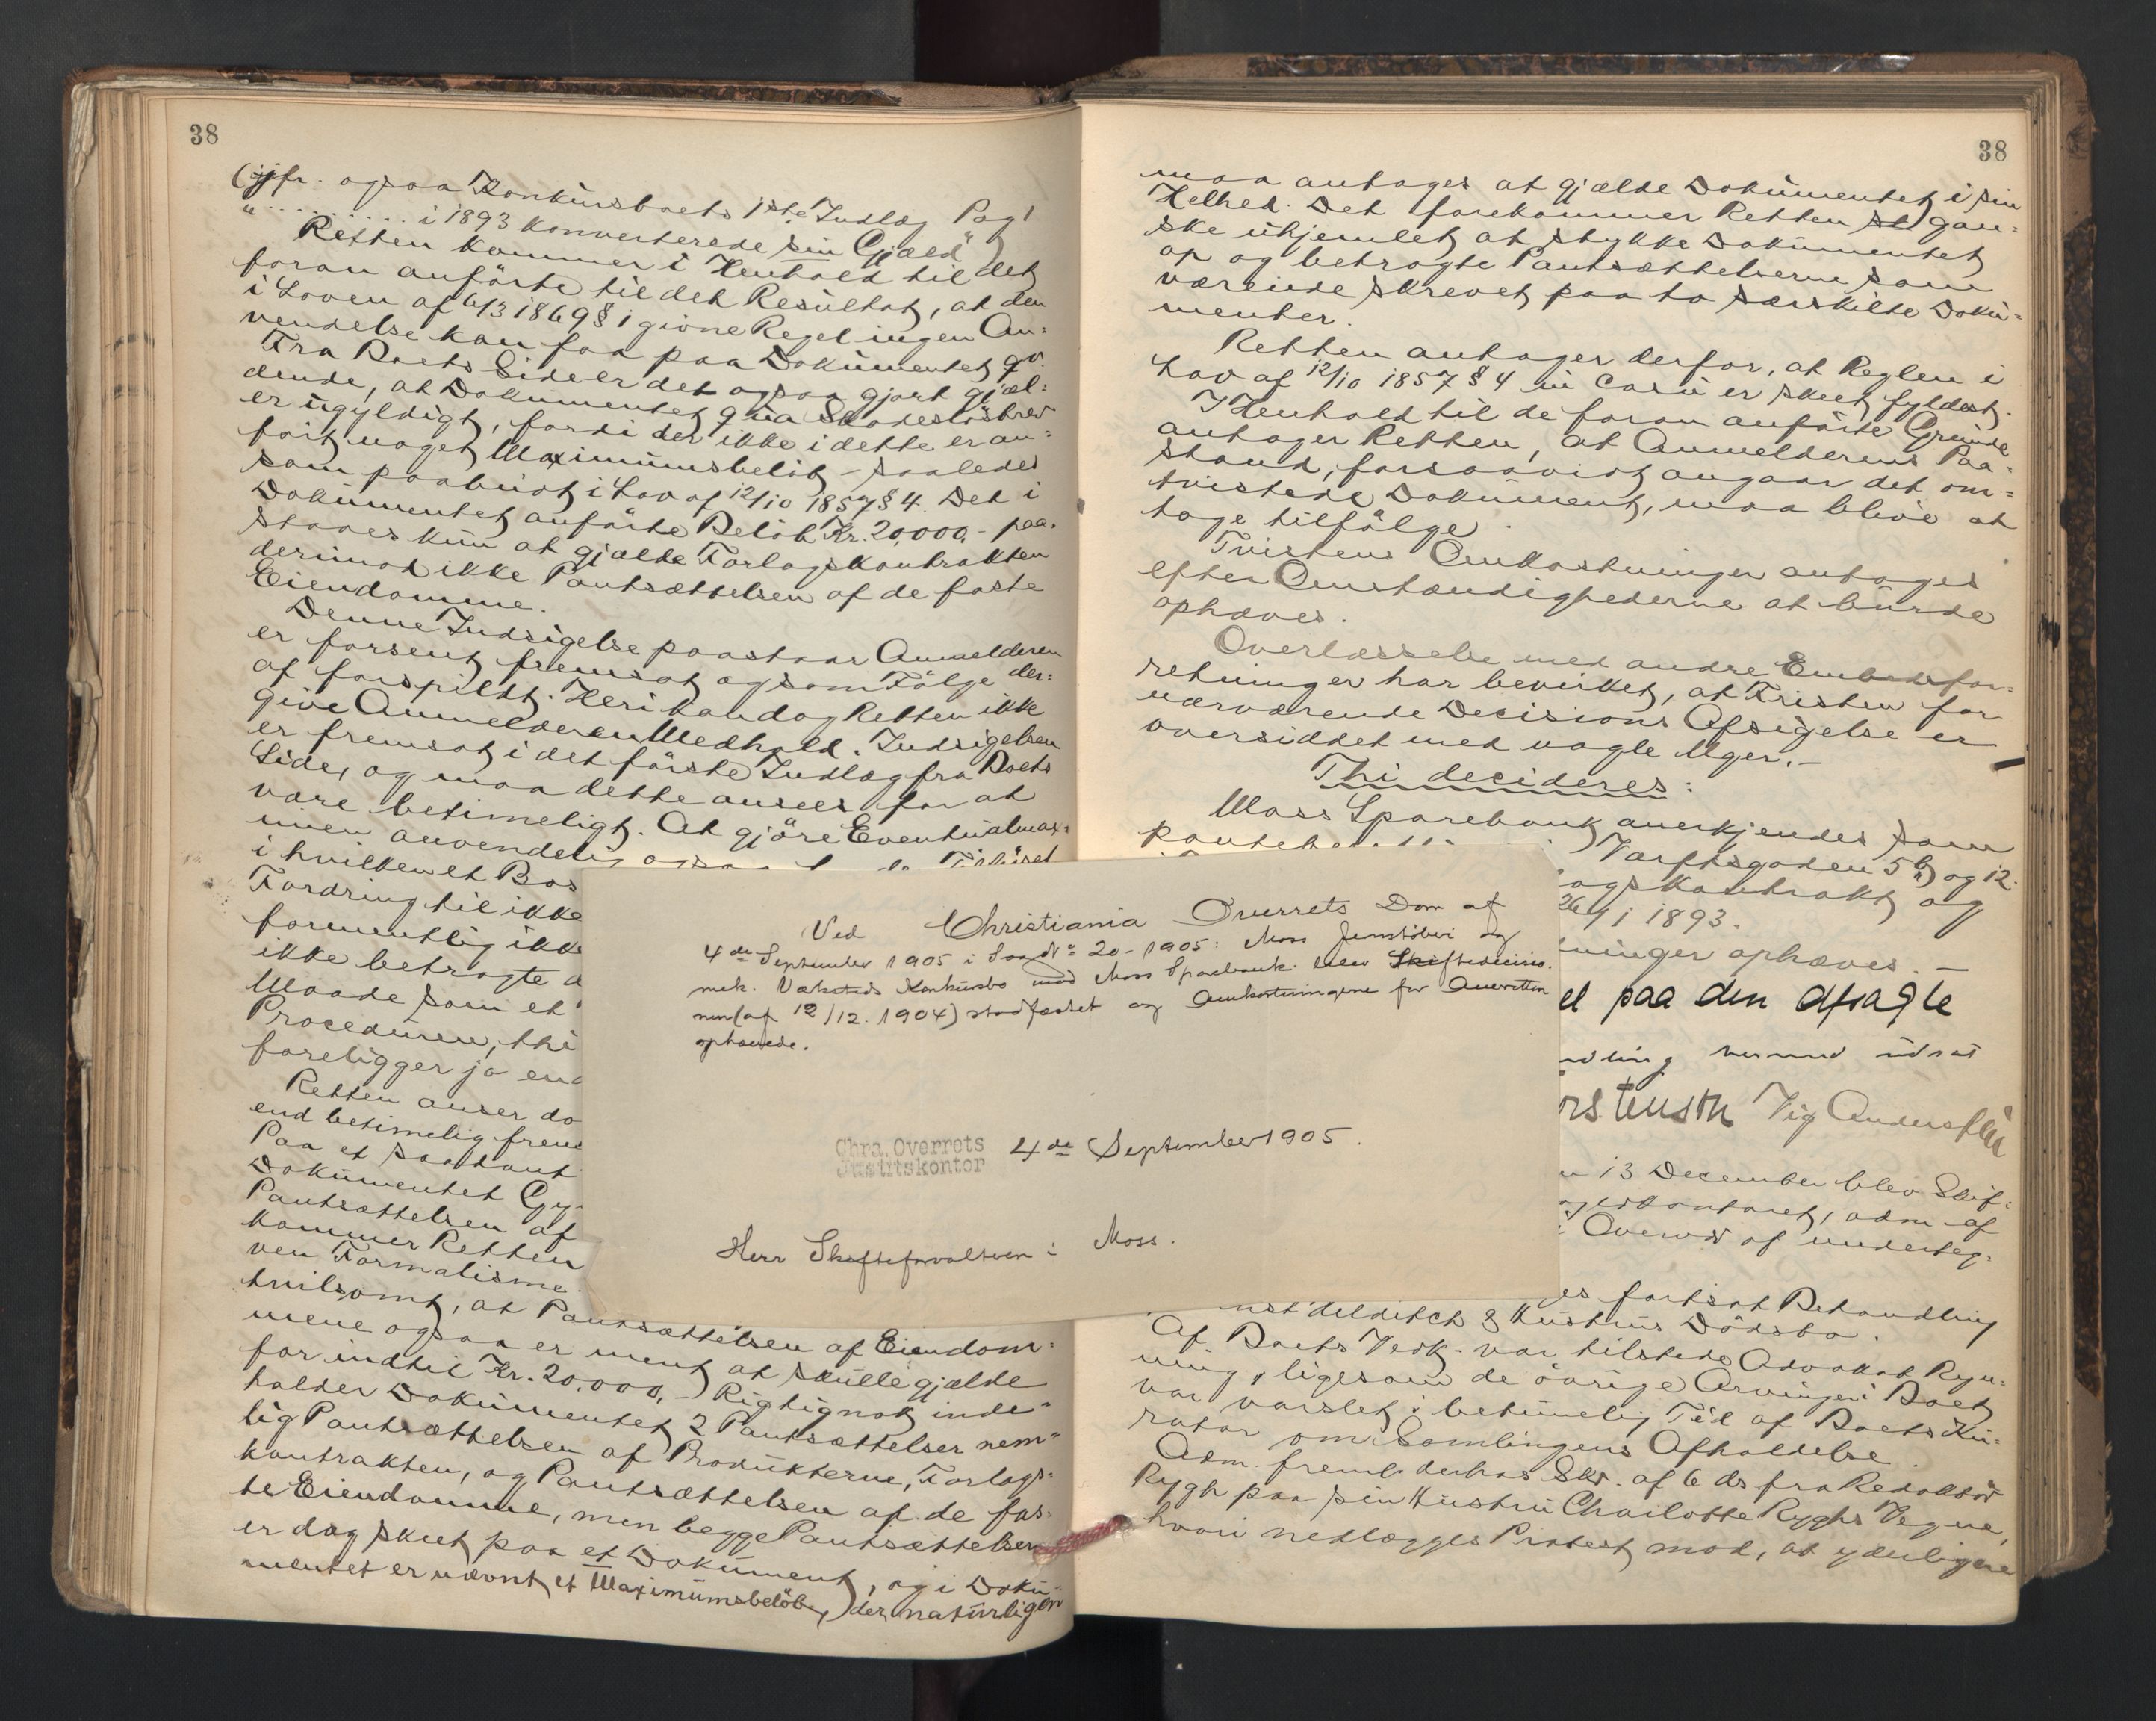 38
(jfr. ogsaa Konkursboets 1ste Indlæg Pag 1
"......... i 1893 konverterede sin Gjæld"
Retten kommer i Henhold til det
foran anførte til det Resultat, at den
i Loven af 6/3 1869 § 1 givne Regel ingen An=
vendelse kan faa paa Dokumentet
Fra Boets Side er det ogsaa gjort gjæl=
dende, at Dokumentet qua Skadesløsbrev
er ugyldigt, fordi der ikke i dette er an=
ført noget Maximumsbeløb – saaledes
som paabudt i Lov af 12/10 1857 § 4. Det i
Dokumentet anførte Beløb Kr. 20,000,- paa=
staaes kun at gjælde Forlagskontrakten
derimod ikke Pantsættelsen af de faste
Eiendomme.
Denne Indsigelse paastaar Anmelderen
er forsent fremsat og som Følge der=
af forspildt. Heri kan dog Retten ikke
give Anmelderen Medhold. Indsigelsen
er fremsat i det første Indlæg fra Boets
Side, og maa dette ansees for at
være betimeligt. At gjøre Eventualmax=
imen anvendelig ogsaa
i hvilken et Bos
Fordring til ikke
formentlig ikke
ikke betragte
Maade som et
Proceduren, thi
foreligger jo
Retten anser
end betimelig
Paa et saadant
Dokumentet
Pantsættelsen af
kommer Retten
ven Formalisme
tvilsomt, at Pantsættelsen af Eiendom=
mene ogsaa er ment at skulle gjælde
for indtil Kr. 20,000,-. Rigtignok inde=
holder Dokumentet 2 Pantsættelser nem=
lig Pantsættelsen af Produkterne, Forlags=
kontrakten, og Pantsættelsen af de fas=
te Eiendomme, men begge Pantsættelser
er dog skeet paa et Dokument, og i Doku=
mentet er nævnt et Maximumsbeløb, der naturligen
Ved Christiania Overrets Dom af
4de September 1905 i Sag No 20-1905: Moss Jernstøberi og
mek. Værksteds Konkursbo mod Moss Sparebank blev Skiftedecisio=
nen (af 12/12. 1904) stadfæstet og Omkostningerne for Overretten
ophævede.
Chra. Overrets
Justitskontor
4de September 1905.
Herr Skifteforvalteren i Moss.
38
maa antages at gjælde Dokumentet i sin
Helhed. Det forekommer Retten gan=
ske uhjemlet at stykke Dokumentet
op og betragte Pantsættelserne som
værende skrevet paa to særskilte Doku=
menter.
Retten antager derfor, at Reglen i
Lov af 12/10 1857 § 4 in casu er skeet fyldest.
I Henhold til de foran anførte Grunde
antager Retten, at Anmelderens Paa=
stand, forsaavidt angaar det om=
tvistede Dokument, maa blive at
tage tilfølge.
Tvistens Omkostninger antages
efter Omstændighederne at burde
ophæves.
Overlæsselse med andre Embedsfor=
retninger har bevirket, at Fristen for
nærværende Decisions Afsigelse er
oversiddet med nogle Uger. –
Thi decideres:
Moss Sparebank anerkjendes som
Varftsgaden 5 b) og 12
agskontrakt og
1893.
ninger ophæves. –
paa den afsagte
ndling
Vig Andersen
13 December blev Skif=
kontoret, adm. af
af underteg=
fortsat Behandling
Hustrus Dødsbo.
Af Boets Vedk. var tilstede Advokat Ryn=
ning, ligesom de øvrige Arvinger i Boet
var varslet i betimelig Tid af Boets Ku=
rator om Samlingens Afholdelse.
Adm. freml. derhos Skr. af 6 ds fra Redaktør
Rygh paa sin Hustru Charlotte Ryghs Vegne,
hvori nedlægges Protest mod, at yderligere